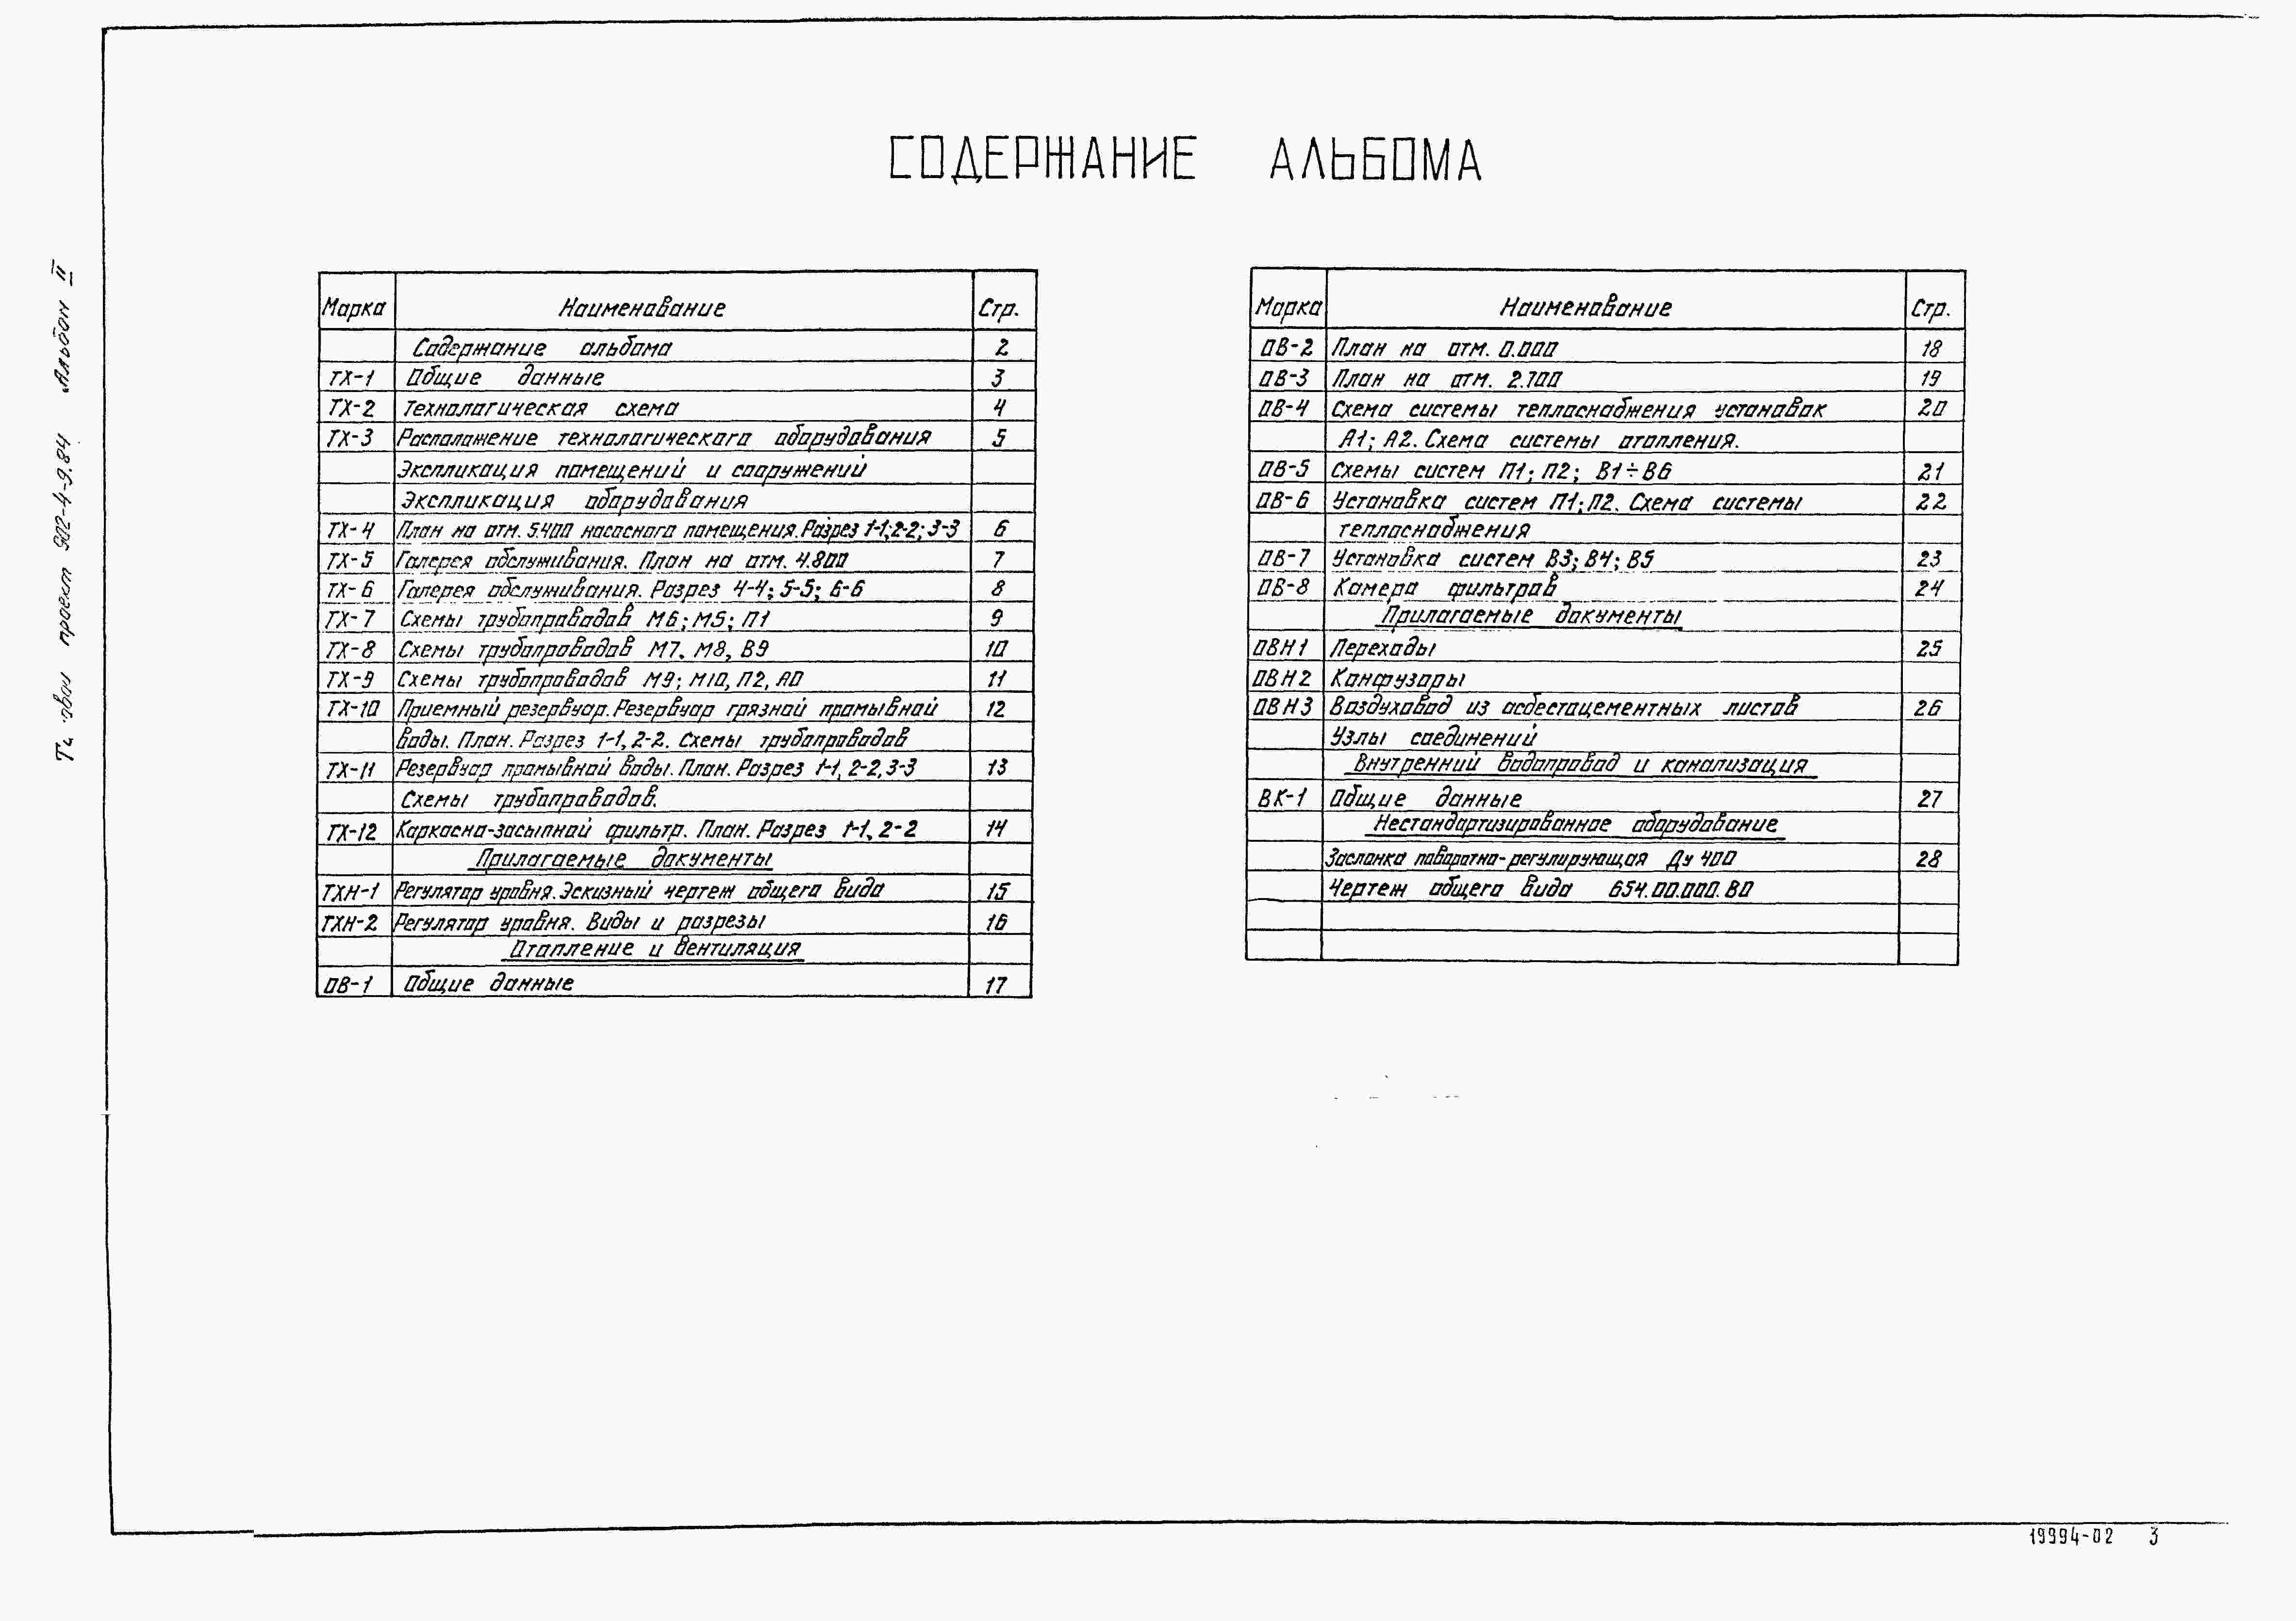 СОДЕРЖАНИЕ АЛЬБОМА
Марка Наименование Стр.
Содержание альбома 2
ТХ-1 Общие данные 3
ТХ-2 Технологическая схема 4
ТХ-3 Расположение технологического оборудования 5
Экспликация помещений и сооружений
Экспликация оборудования
ТХ-4 План на отм. 5.400 насосного помещения. Разрез 1-1; 2-2; 3-3 6
ТХ-5 Галерея обслуживания. План на отм. 4.800 7
ТХ-6 Галерея обслуживания. Разрез 4-4; 5-5; 6-6 8
ТХ-7 Схемы трубопроводов М6; М5; П1 9
ТХ-8 Схемы трубопроводов М7, М8, В9 10
ТХ-9 Схемы трубопроводов М9; М10, П2, А0 11
ТХ-10 Приемный резервуар. Резервуар грязной промывной 12
воды. План. Разрез 1-1, 2-2. Схемы трубопроводов
ТХ-11 Резервуар промывной воды. План. Разрез 1-1, 2-2, 3-3 13
Схемы трубопроводов.
ТХ-12 Каркасно-засыпной фильтр. План. Разрез 1-1, 2-2 14
Прилагаемые документы
ТХН-1 Регулятор уровня. Эскизный чертеж общего вида 15
ТХН-2 Регулятор уровня. Виды и разрезы 16
Отопление и вентиляция
ОВ-1 Общие данные 17
Марка Наименование Стр.
ОВ-2 План на отм. 0.000 18
ОВ-3 План на отм. 2.700 19
ОВ-4 Схема системы теплоснабжения установок 20
А1; А2. Схема системы отопления.
ОВ-5 Схемы систем П1; П2; В1÷В6 21
ОВ-6 Установка систем П1; П2. Схема системы 22
теплоснабжения
ОВ-7 Установка систем В3; В4; В5 23
ОВ-8 Камера фильтров 24
Прилагаемые документы
ОВН1 Переходы 25
ОВН2 Конфузоры
ОВН3 Воздуховод из асбестоцементных листов 26
Узлы соединений
Внутренний водопровод и канализация
ВК-1 Общие данные 27
Нестандартизированное оборудование
Заслонка поворотно-регулирующая Ду 400 28
Чертеж общего вида 654.00.000.ВО
проект 902-4-9.84 Альбом II
19994-02 3